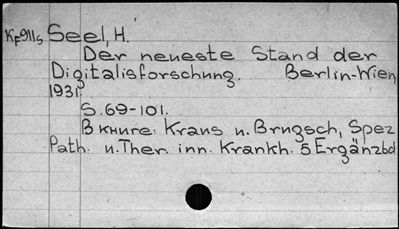 KF911s Seel, H.
Der neueste Stand der
Digitalisforschung. Berlin-Wien,
1931.
S. 69-101.
В книге: Kraus u. Brugsch, Spez
Path. u. Ther. inn. Krankh. 5 Ergänzbd